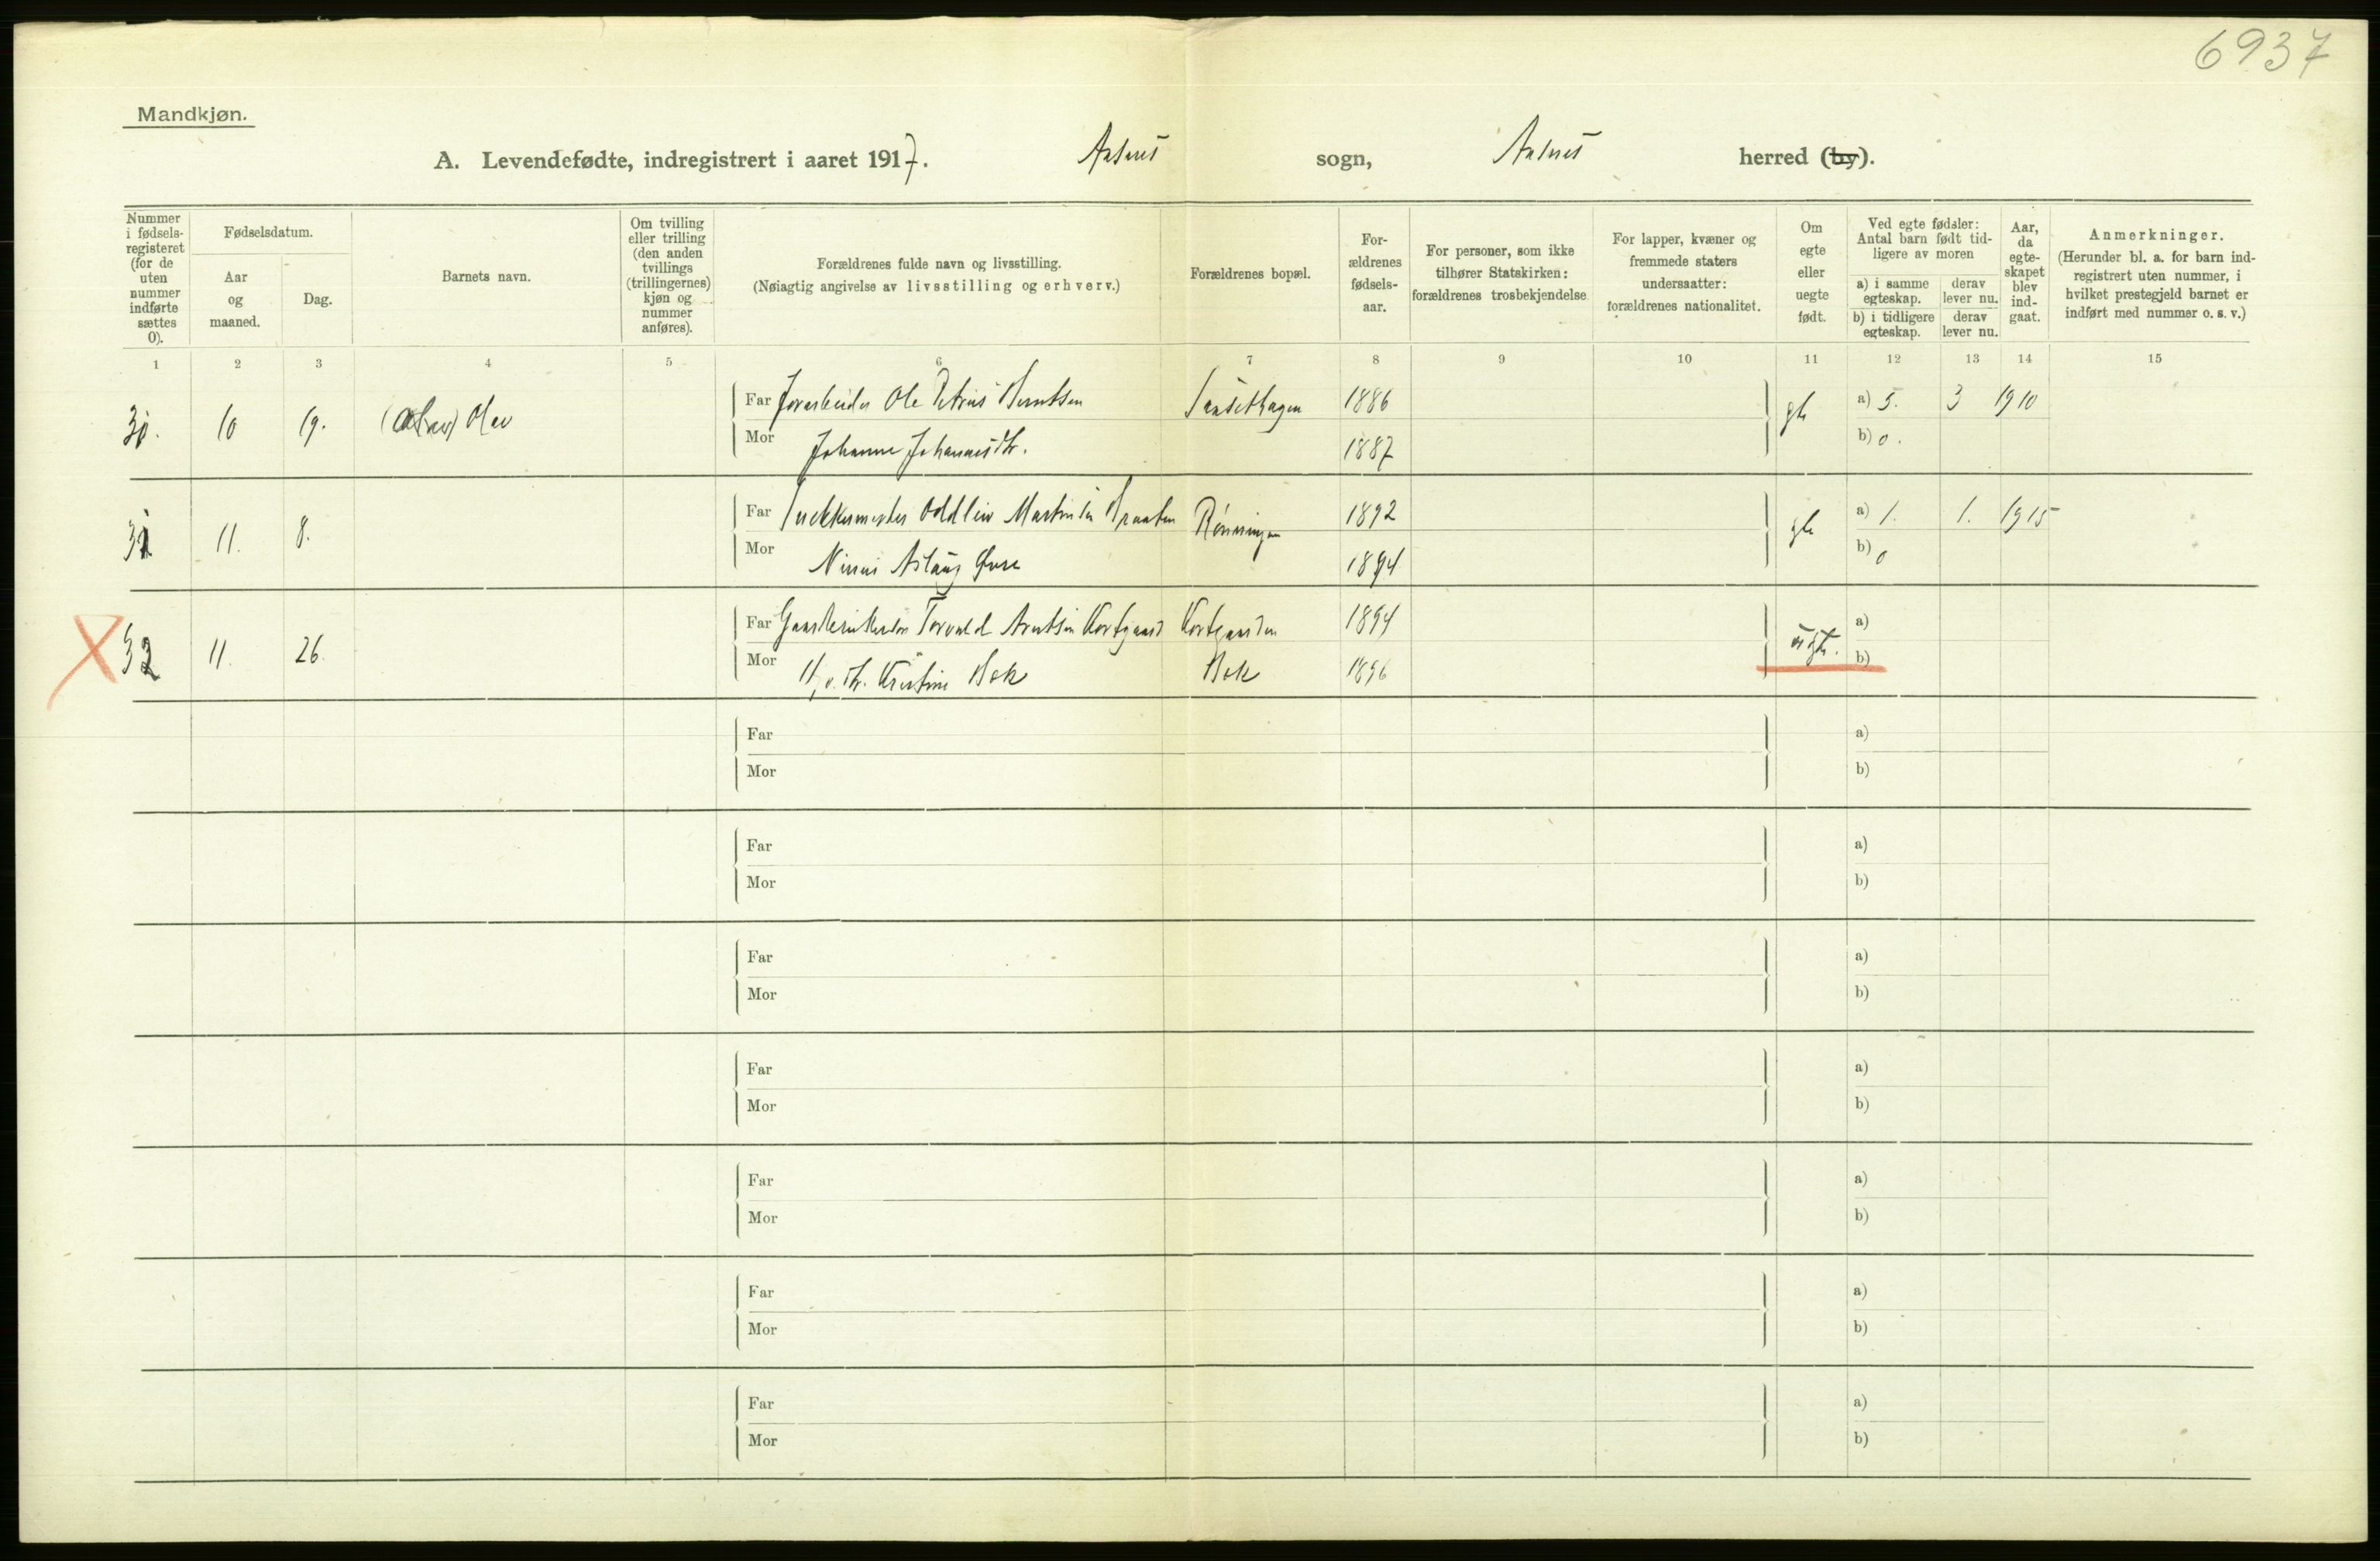 6937
Mandkjøn.
A. Levendefødte, indregistrert i aaret 1917. Aasnes sogn, Aasnes herred (by).
Nummer i fødsels-registeret (for de uten nummer indførte sættes 0).
Fødselsdatum.
Aar og maaned.
Dag.
Barnets navn.
Om tvilling eller trilling (den anden tvillings (trillingernes) kjøn og nummer anføres).
Forældrenes fulde navn og livsstilling.
(Nøiagtig angivelse av livsstilling og erhverv.)
Forældrenes bopæl.
For-ældrenes fødsels-aar.
For personer, som ikke tilhører Statskirken: forældrenes trosbekjendelse
For lapper, kvæner og fremmede staters undersaatter: forældrenes nationalitet.
Om egte eller uegte født.
Ved egte fødsler: Antal barn født tid-ligere av moren
a) i samme egteskap.
derav lever nu.
b) i tidligere egteskap.
derav lever nu.
Aar, da egte-skapet blev ind-gaat.
Anmerkninger.
(Herunder bl. a. for barn ind-registrert uten nummer, i hvilket prestegjeld barnet er indført med nummer o. s. v.)
1 2 3 4 5 6 7 8 9 10 11 12 13 14 15
30. 10 19. Olav Far Jordarbeider Ole Petrus Berntsen 1886 gte a) 5. 3 1910
Mor Johanne Johannesdtr. 1887 b) 0.
31 11. 8. Far Oddleiv Martinsen Braaten Rønningen 1892 gte a) 1. 1. 1915
Mor Aslaug 1894 b) 0
X 32 11. 26. Far Torvald Arntsen Kortgaard Kortgaarden 1894 uegte. a)
Mor Kristine Bek Bek 1896 b)
Far a)
Mor b)
Far a)
Mor b)
Far a)
Mor b)
Far a)
Mor b)
Far a)
Mor b)
Far a)
Mor b)
Far a)
Mor b)